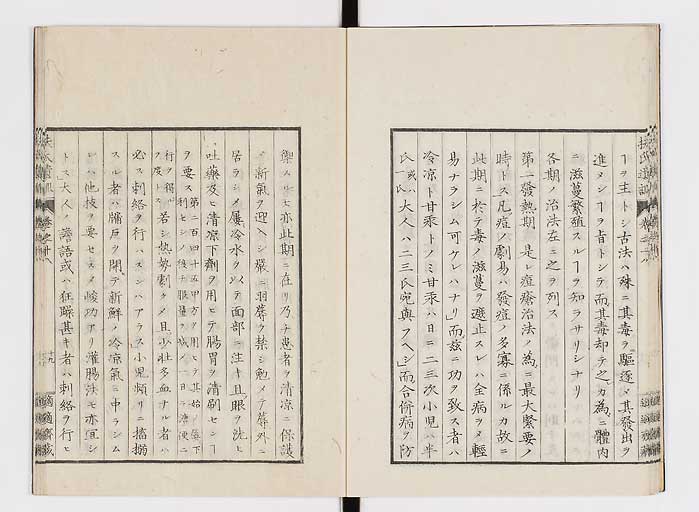 ヿヲ主トシ古法ハ殊ニ其毒ヲ駆逐〆其発出ヲ
進メンヿヲ旨トシテ而其毒却テ之カ為ニ體内
ニ滋蔓繁殖スルヿヲ知ラサリシナリ
各期ノ治法左ニ之ヲ列ス
第一發熱期 是レ痘瘡治法ノ為ニ最大緊要ノ
時トス凡痘ノ劇易ハ發痘ノ多寡ニ係ルカ故ニ
此期ニ於テ毒ノ滋蔓ヲ遮止スレハ全病ヲ〆輕
易ナラシム可ケレハナリ而茲ニ功ヲ致ス者ハ
冷凉ト甘汞トノミ甘汞ハ日ニ二三次小児ハ半
氏或ハ一氏大人ハ二三氏宛與フヘシ而合併病ヲ防
禦スルモ亦此期ニ在リ乃チ患者ヲ清凉ニ保護
〆新氣ヲ迎ヘシ嚴ニ羽蓐ヲ禁シ勉メテ蓐外ニ
居ラシメ屢冷水ヲ以テ面部ニ注キ且眼ヲ洗ヒ
吐藥及ヒ清凉下劑ヲ用ヒテ腸胃ヲ清刷センヿ
ヲ要ス第二百四十五甲方ヲ用ヒテ其始メ瀉下
利セシメ後チ服量ヲ減メ一日ニ溏便二
行ヲ得ルヲ度トス若シ熱勢劇クメ且少壮多血ナル者ハ
必ス刺絡ヲ行ハスンハアラス小児頻リニ搐搦
スル者ハ牖戸ヲ開テ新鮮ノ冷凉氣ニ中ラシム
レハ他技ヲ要セスメ峻功アリ灌腸法モ亦宜シ
トス大人ノ譫語或ハ狂躁甚キ者ハ刺絡ヲ行ヒ
扶氏遺訓
適適齋藏